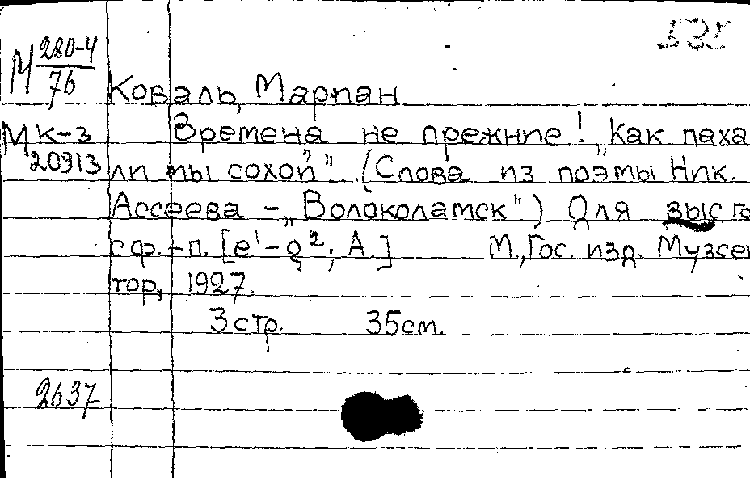 535
М 280-4
76
Коваль, Мариан
МК-3
20913
Времена не прежние! „Как паха
ли мы сохой"" (Слова из поэмы Ник.
Ассеева – „Волоколамск") Для выс го
с ф.-п. [e¹–g²; A.] М., Гос. изд. Музсек
тор, 1927.
3 стр. 35 см.
2637